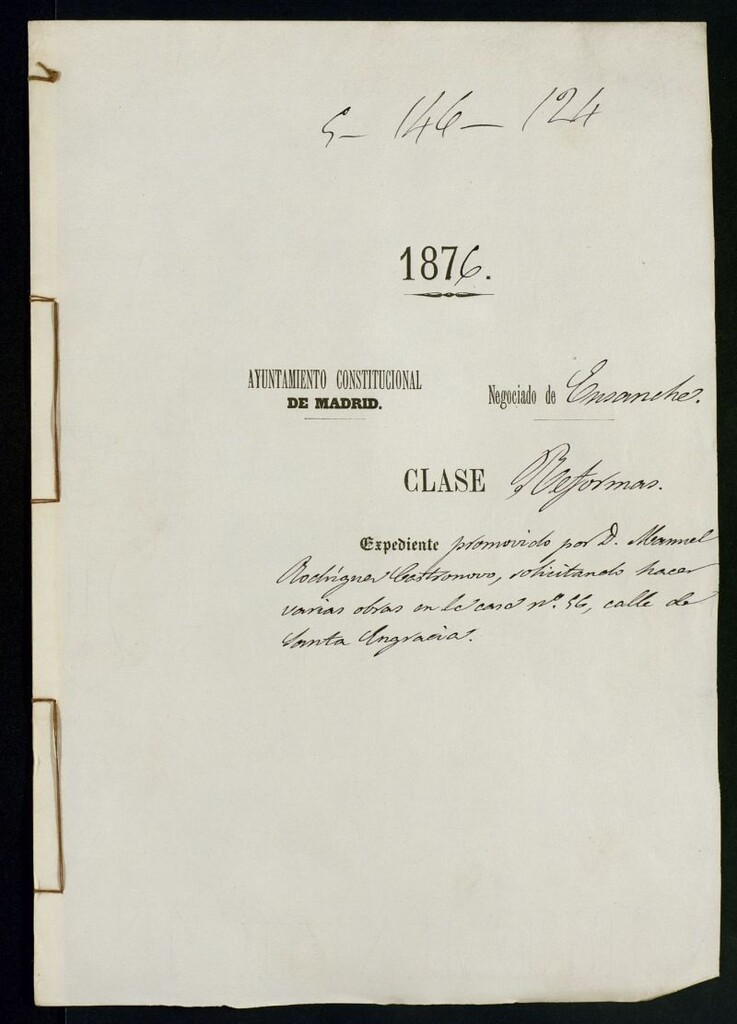 5 - 146 - 124
1876.
AYUNTAMIENTO CONSTITUCIONAL
DE MADRID.
Negociado de Ensanche.
CLASE Reformas.
Expediente promovido por D. Manuel
Rodriguez Castronovo, solicitando hacer
varias obras en la casa nº. 56, calle de
Santa Engracia.